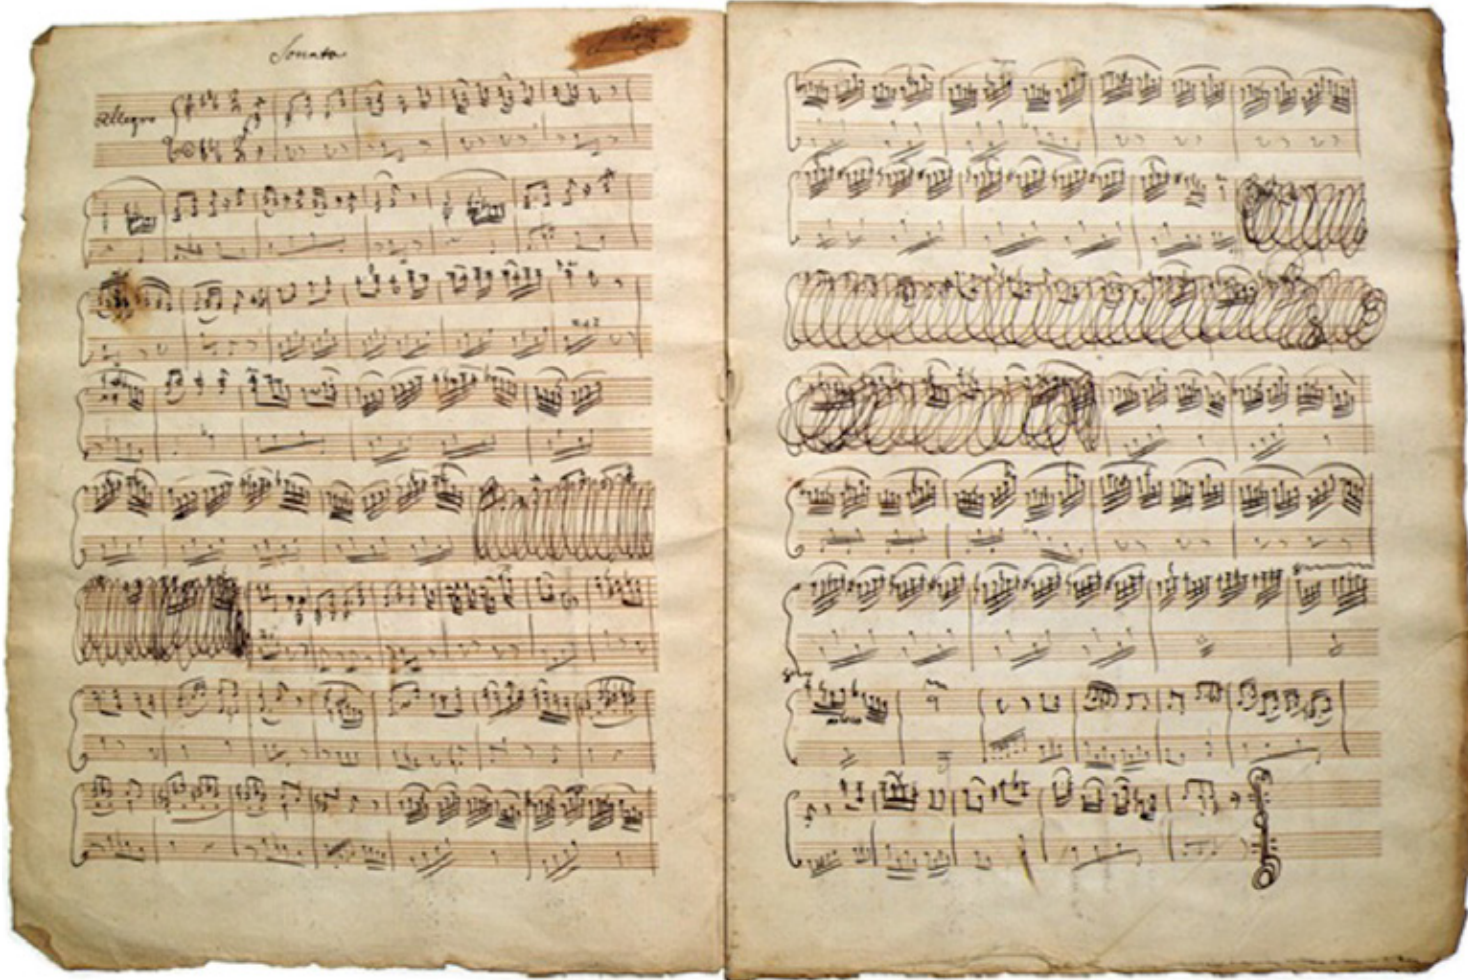 Sonata
Allegro